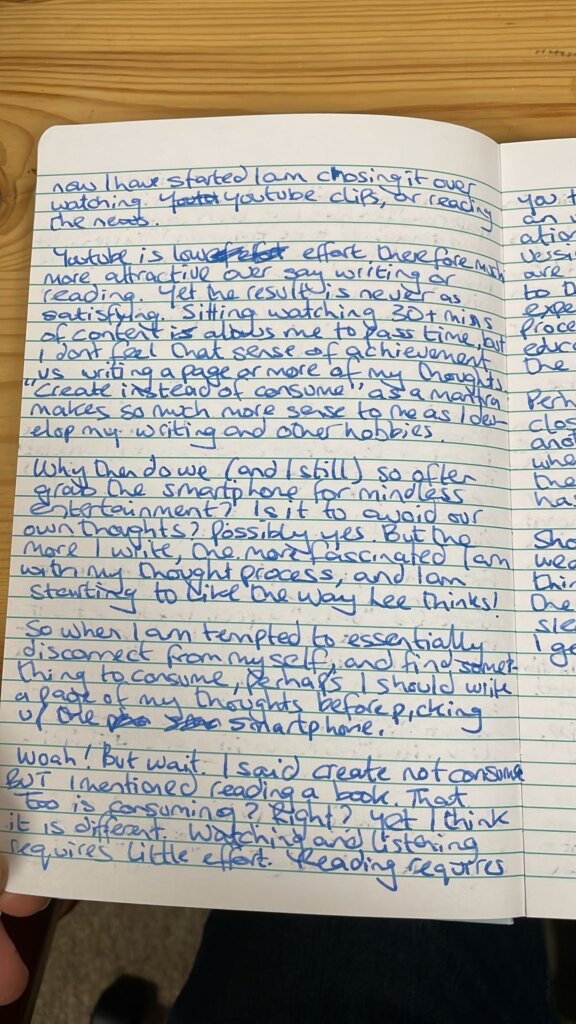 now I have started I am chosing it over
watching. Youtube clips, or reading
the news.
Youtube is low effort therefore much
more attractive over say writing or
reading. Yet the result is never as
satisfying. Sitting watching 30+ mins
of content is allows me to pass time, but
I dont feel that sense of achievement
vs writing a page or more of my thoughts.
"Create instead of consume" as a mantra
makes so much more sense to me as I dev-
elop my writing and other hobbies.
Why then do we (and I still) so often
grab the smartphone for mindless
entertainment? Is it to avoid our
own thoughts? Possibly yes. But the
more I write, the more fascinated I am
with my thought process, and I am
starting to like the way Lee thinks!
So when I am tempted to essentially
disconnect from myself, and find some-
thing to consume, perhaps I should write
a page of my thoughts before picking
up the smartphone.
Woah! But wait. I said create not consume
BUT I mentioned reading a book. That
too is consuming? Right? Yet I think
it is different. Watching and listening
requires little effort. Reading requires
you t
an
ation
versi
are
to th
expe
proce
educ
The
Perh
clos
ano
whe
the
ha
Sho
wea
thin
the
slee
I ge